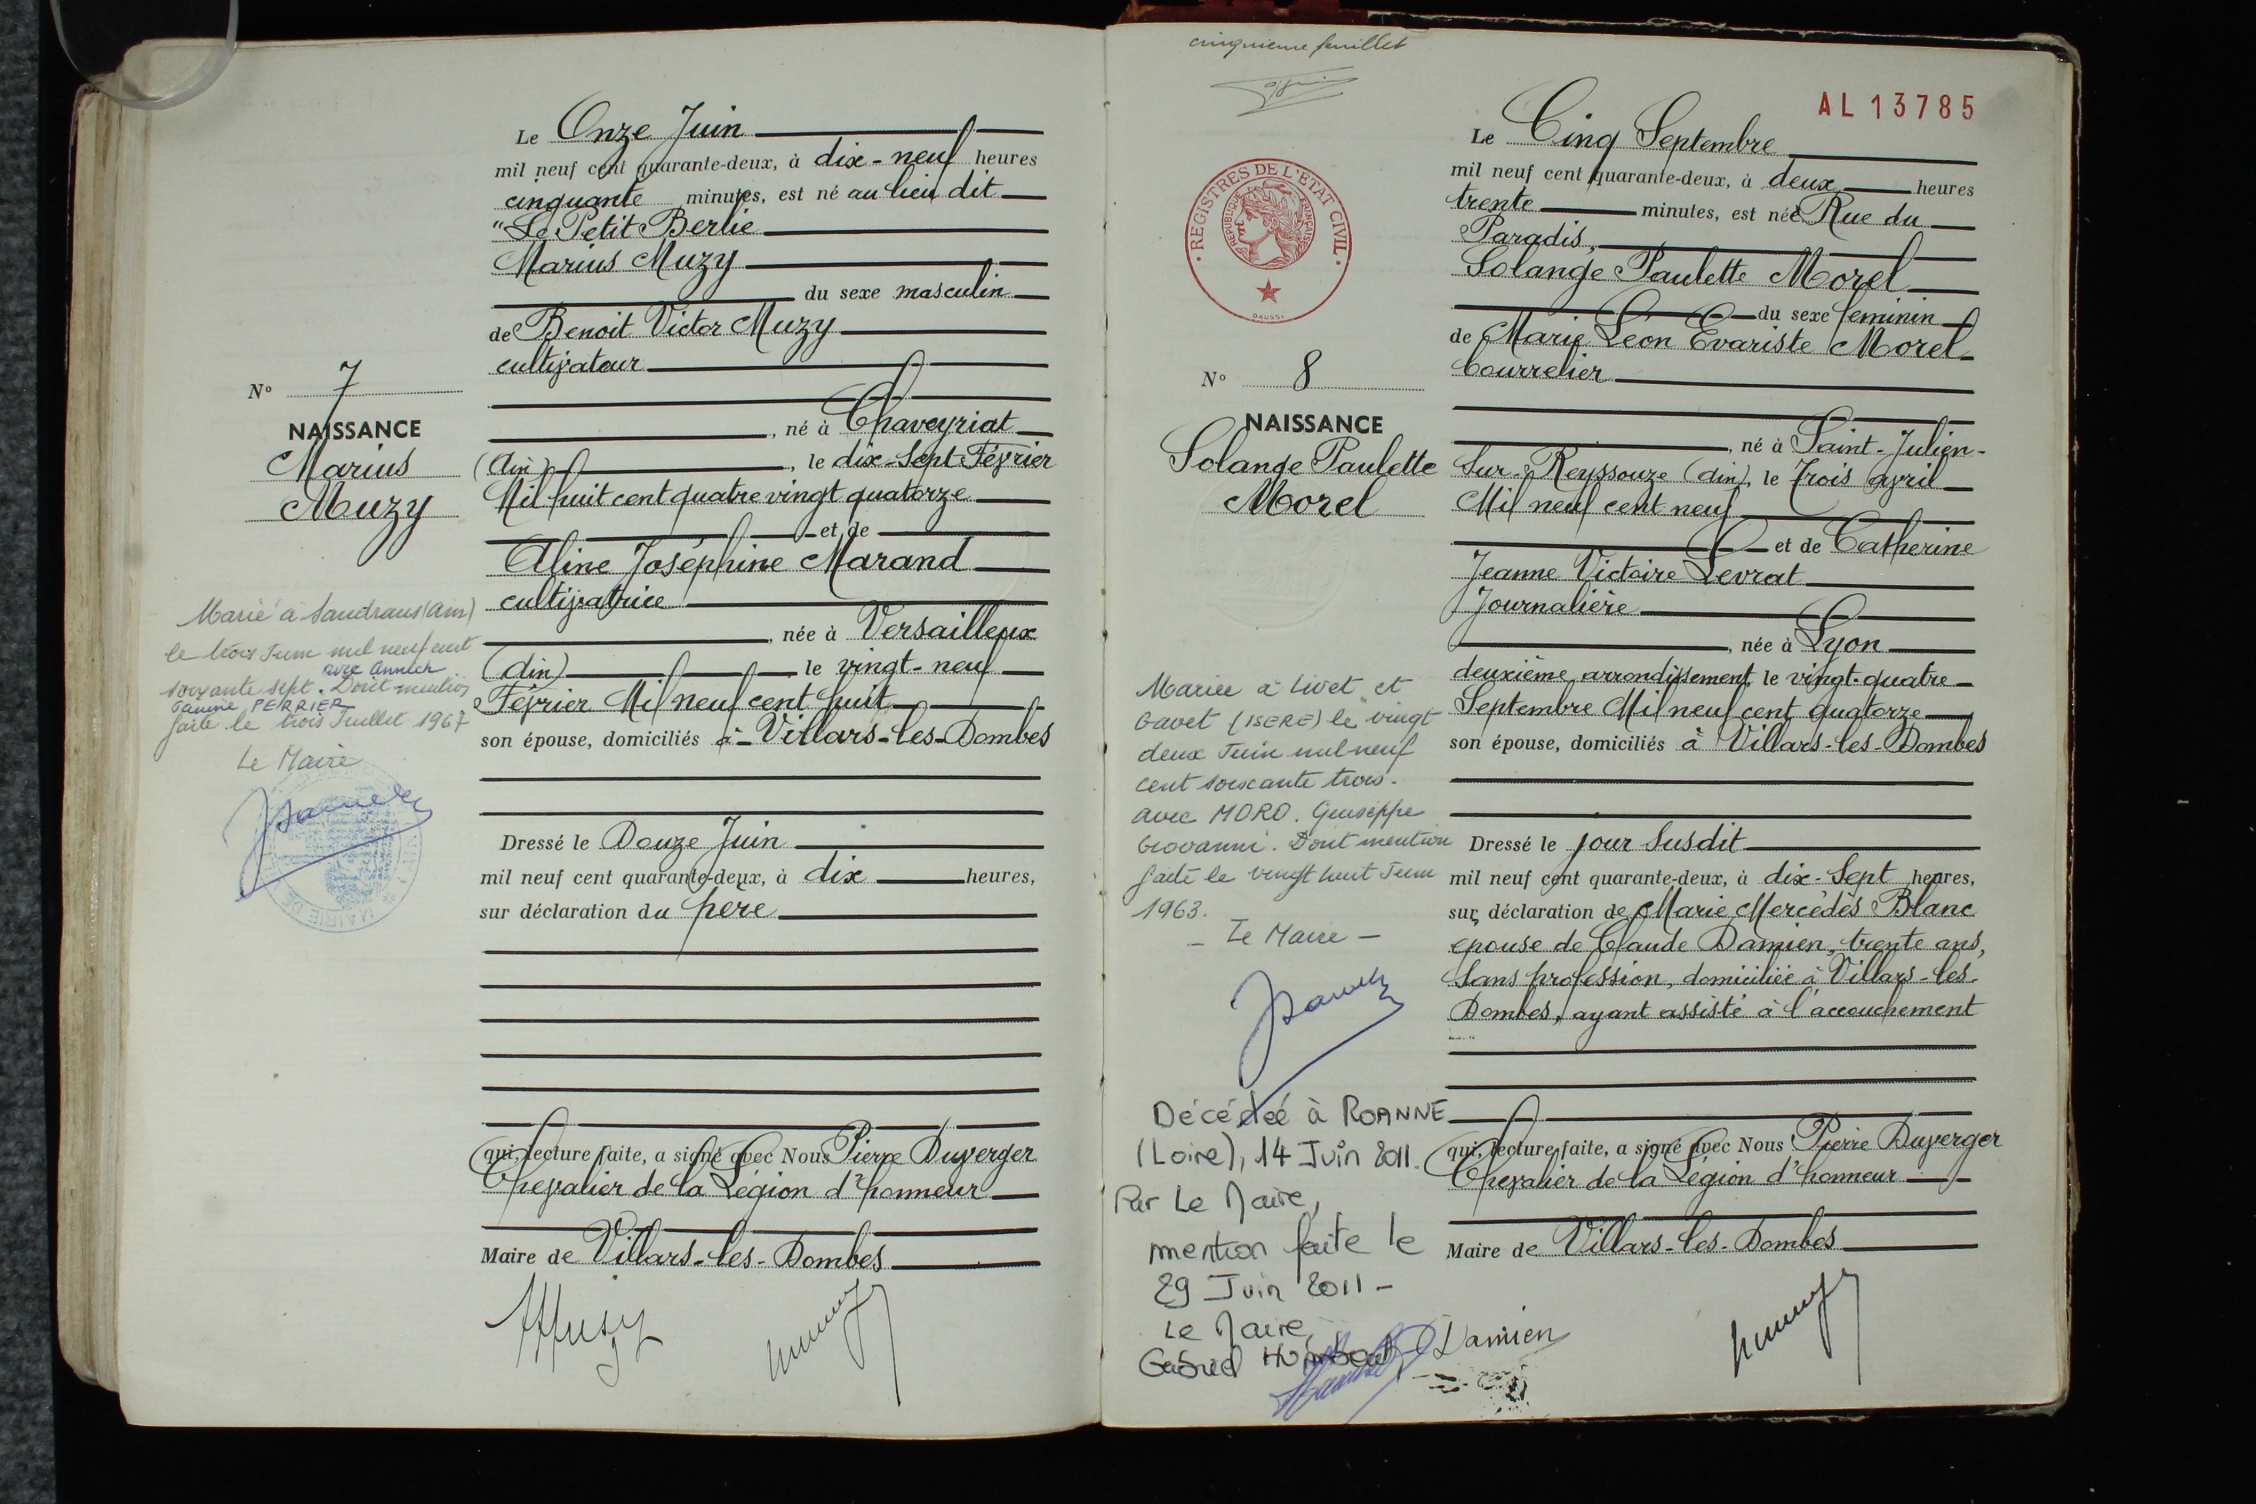 Le Onze Juin
mil neuf cent quarante-deux, à dix-neuf heures
cinquante minutes, est né au lieu dit
"Le Petit Berlie
Marius Muzy
du sexe masculin
de Benoit Victor Muzy
cultivateur
, né à Chaveyriat
(Ain), le dix-Sept Février
Mil huit cent quatre vingt quatorze
et de
Aline Joséphine Marand
cultivatrice
, née à Versailleux
(Ain) le vingt-neuf
Février Mil neuf cent huit
son épouse, domiciliés à Villars-les-Dombes
Dressé le Douze Juin
mil neuf cent quarante-deux, à dix heures,
sur déclaration du père
qui, lecture faite, a signé avec Nous Pierre Duverger
Chevalier de la Légion d'honneur
Maire de Villars-les-Dombes
N° 7
NAISSANCE
Marius
Muzy
Marié à Sandrans (Ain)
le trois Juin mil neuf cent
avec Annick
soixante sept. Dont mention
PERRIER
faite le trois Juillet 1967
Le Maire
MAIRIE DE
cinquième feuillet
AL 13785
REGISTRES DE L'ÉTAT CIVIL
RÉPUBLIQUE FRANÇAISE
DAUSSY
Le Cinq Septembre
mil neuf cent quarante-deux, à deux heures
trente minutes, est née Rue du
Paradis,
Solange Paulette Morel
du sexe féminin
de Marie Léon Evariste Morel
bourrelier
, né à Saint-Julien-
Sur-Reyssouze (Ain), le Trois Avril
Mil neuf cent neuf
et de Catherine
Jeanne Victoire Levrat
Journalière
, née à Lyon
deuxième arrondissement le vingt-quatre
Septembre Mil neuf cent quatorze
son épouse, domiciliés à Villars-les-Dombes
Dressé le jour Susdit
mil neuf cent quarante-deux, à dix-Sept heures,
sur déclaration de Marie Mercédès Blanc
épouse de Claude Damien, trente ans,
Sans profession, domiciliée à Villars-les-
Dombes, ayant assisté à l'accouchement
qui, lecture faite, a signé avec Nous Pierre Duverger
Chevalier de la Légion d'honneur
Maire de Villars-les-Dombes
Damien
N° 8
NAISSANCE
Solange Paulette
Morel
Mariée à Livet et
Gavet (ISERE) le vingt
deux Juin mil neuf
cent soixante trois.
avec MORO. Giuseppe
Giovanni. Dont mention
faite le vingt huit Juin
1963.
- Le Maire -
Décédée à ROANNE
(Loire), 14 Juin 2011.
Par Le Maire,
mention faite le
29 Juin 2011 -
Le Maire,
Gabriel HUMBERT